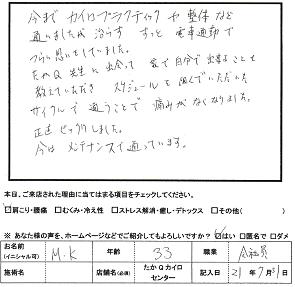 今まで カイロプラクティック や 整体 など
通いましたが 治らず ずっと 電車通勤で
つらい思いをしていました。
たかQ先生に出会って 家で自分で出来ることも
教えていただき スケジュールを組んでいただいた
サイクルで通うことで 痛みがなくなりました。
正直ビックリしました。
今は メンテナンスで通っています。
本日、ご来店された理由に当てはまる項目をチェックしてください。
☑肩こり・腰痛 □むくみ・冷え性 □ストレス解消・癒し・デトックス □その他( )
※ あなた様の声を、ホームページなどでご紹介してもよろしいですか? ☑はい □匿名で □ダメ
お名前 (イニシャル可) M.K 年齢 33 職業 会社員
施術名 店舗名(必須) たかQカイロセンター 記入日 21年7月31日